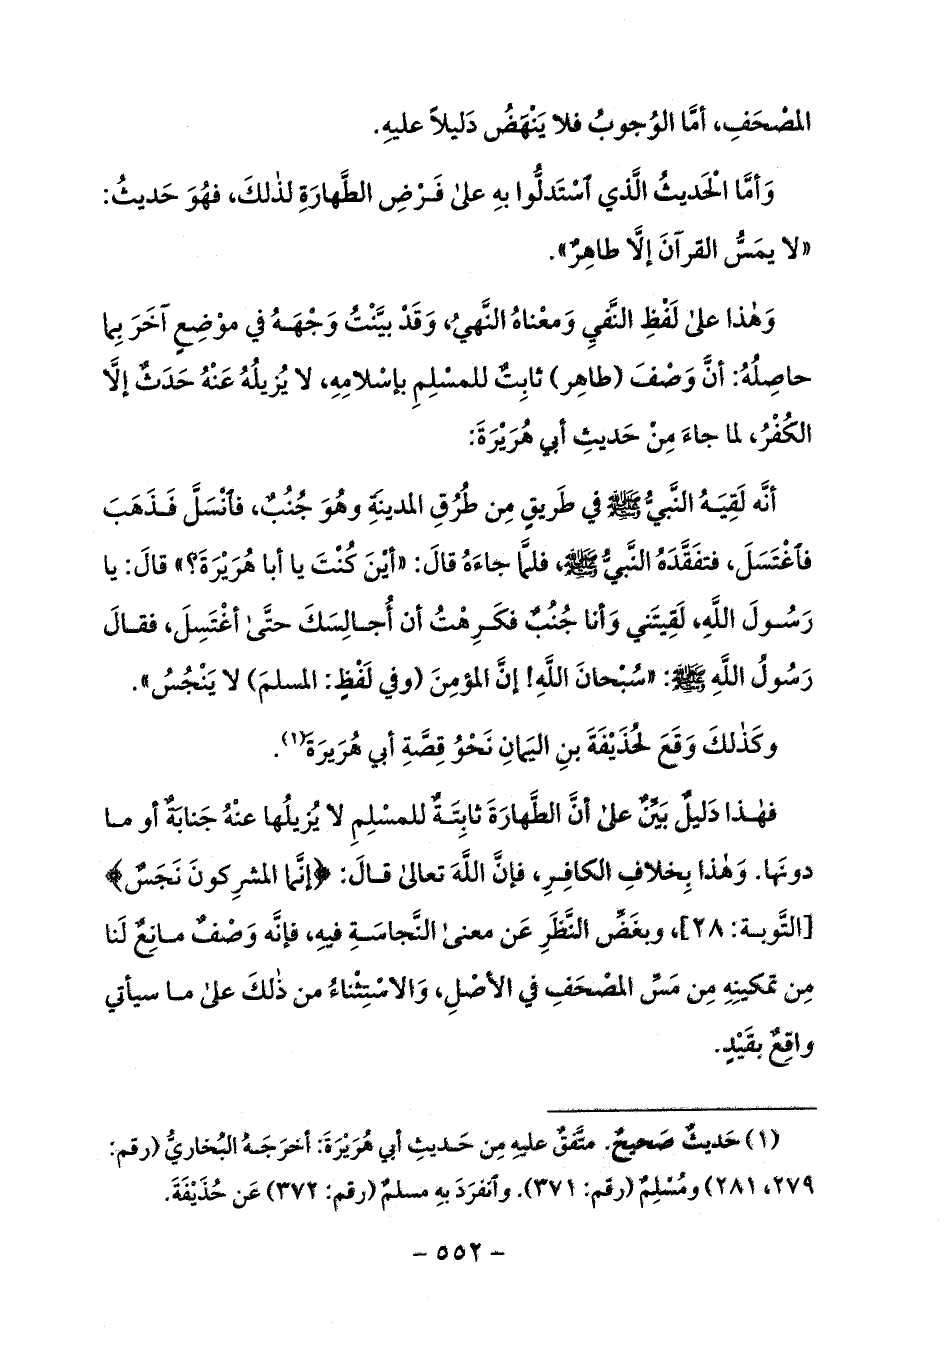 المصْحَفِ، أمَّا الوُجوبُ فلا يَنْهَضُ دَليلاً عليهِ.
وَأمَّا الْحَديثُ الَّذي ٱسْتَدلُّوا بهِ علىٰ فَـرْضِ الطَّهارَةِ لذٰلكَ، فهُوَ حَديثُ:
«لا يمَسُّ القرآنَ إلَّا طاهِرٌ».
وَهٰذا علىٰ لَفْظِ النَّفيِ وَمعْناهُ النَّهيُ، وَقَدْ بيَّنْتُ وَجْهَـهُ في موْضِعٍ آخَرَ بِما
حاصِلُهُ: أنَّ وَصْفَ (طاهِر) ثابِتٌ للمسْلِمِ بإسْلامِهِ، لا يُزيلُهُ عَنْهُ حَدَثٌ إلَّا
الكُفْرُ، لما جاءَ مِنْ حَديثِ أبي هُرَيْرَةَ:
أنَّه لَقِيَـهُ النَّبيُّ ﷺ في طَريقٍ مِن طُرُقِ المدينَةِ وهُوَ جُنُبٌ، فٱنْسَلَّ فَـذَهَبَ
فٱغْتَسَلَ، فتفَقَّدَهُ النَّبيُّ ﷺ، فلمَّا جاءَهُ قالَ: «أيْنَ كُنْتَ يا أبا هُرَيْرَةَ؟» قالَ: يا
رَسُـولَ اللَّهِ، لَقِيتَني وَأنا جُنُبٌ فكَـرِهْتُ أن أُجـالِسَكَ حتَّىٰ أغْتَسِلَ، فقـالَ
رَسُولُ اللَّهِ ﷺ: «سُبْحانَ اللَّهِ! إنَّ المؤمِنَ (وفي لَفْظٍ: المسلمَ) لا يَنْجُسُ».
وكَذٰلكَ وَقَعَ لحُذَيْفَةَ بنِ اليَمانِ نَحْوُ قِصَّةِ أبي هُرَيرَةَ(١).
فهٰـذا دَليلٌ بَيِّنٌ علىٰ أنَّ الطَّهارَةَ ثابِتَـةٌ للمسْلِمِ لا يُزيلُها عنْهُ جَنابَةٌ أو مـا
دونَها. وَهٰذا بِخلافِ الكافِـرِ، فإنَّ اللَّهَ تعالىٰ قـالَ: ﴿إنَّما المشرِكونَ نَجَسٌ﴾
[التَّوبـة: ٢٨]، وبغَضِّ النَّظَرِ عَن معنىٰ النَّجاسَـةِ فيهِ، فإنَّه وَصْفٌ مـانِعٌ لَنا
مِن تمكينِهِ مِن مَسِّ المصْحَفِ في الأصْلِ، وَالاسْتِثْناءُ من ذٰلكَ علىٰ مـا سيأتي
واقِعٌ بقَيْدٍ.
(١) حَديثٌ صَحيحٌ. متَّفقٌ عليهِ مِن حَـديثِ أبي هُرَيْرَةَ: أخرَجَـهُ البُخاريُّ (رقم:
٢٧٩، ٢٨١) ومُسْلِمٌ (رقم: ٣٧١). وٱنفرَدَ بهِ مسلمٌ (رقم: ٣٧٢) عَن حُذَيْفَةَ.
- ٥٥٢ -